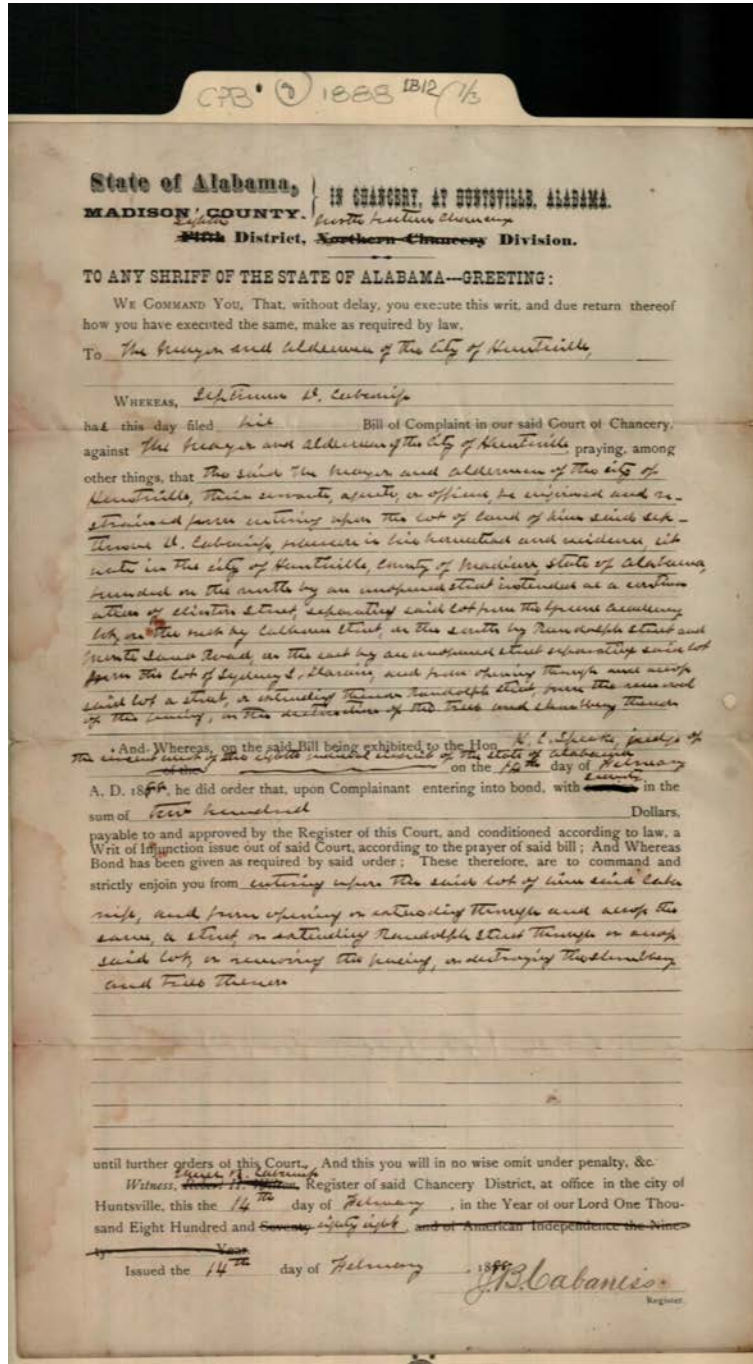 CPB 1888 1B12 1/3
State of Alabama,
MADISON COUNTY.
IN CHANCERY, AT HUNTSVILLE, ALABAMA.
Eighth North Eastern Chancery
Fifth District, Northern Chancery Division.
TO ANY SHRIFF OF THE STATE OF ALABAMA—GREETING:
WE COMMAND YOU, That, without delay, you execute this writ, and due return thereof
how you have executed the same, make as required by law.
To The Mayor and Aldermen of the City of Huntsville,
WHEREAS, Septimus D. Cabaniss
has this day filed his Bill of Complaint in our said Court of Chancery,
against The Mayor and Aldermen of the City of Huntsville praying, among
other things, that the said The Mayor and Aldermen of the city of
Huntsville, their servants, agents, or officers, be enjoined and re-
strained from entering upon the lot of land of him said Sep-
timus D. Cabaniss, whereon is his homestead and residence, sit
uate in the city of Huntsville, county of Madison, state of Alabama,
bounded on the north by an unopened street intended as a contin
uation of Clinton Street, separating said lot from the Greene Academy
lot, on the west by Calhoun Street, on the south by Randolph Street and
Monte Sano Road, on the east by an unopened street separating said lot
from the lot of Sydney and from opening through and across
said lot a street, or extending Randolph Street, from the removal
of the fencing, or the destruction of the trees and shrubbery thereon
And Whereas, on the said Bill being exhibited to the Hon H. C. Speake judge of
the circuit court of the eighth judicial circuit of the state of Alabama
on the 14th day of February
A. D. 1888, he did order that, upon Complainant entering into bond, with security in the
sum of two hundred Dollars,
payable to and approved by the Register of this Court, and conditioned according to law, a
Writ of Injunction issue out of said Court, according to the prayer of said bill; And Whereas
Bond has been given as required by said order; These therefore, are to command and
strictly enjoin you from entering upon the said lot of him said Caba
niss, and from opening or extending through and across the
same, a street, or extending Randolph Street through or across
said lot, or removing the fencing, or destroying the shrubbery
and trees thereon
until further orders of this Court. And this you will in no wise omit under penalty, &c.
Witness, Register of said Chancery District, at office in the city of
Huntsville, this the 14th day of February, in the Year of our Lord One Thou-
sand Eight Hundred and Seventy eighty eight, and of American Independence the Nine-
ty Year
Issued the 14th day of February, 1888
J.B. Cabaniss.
Register.